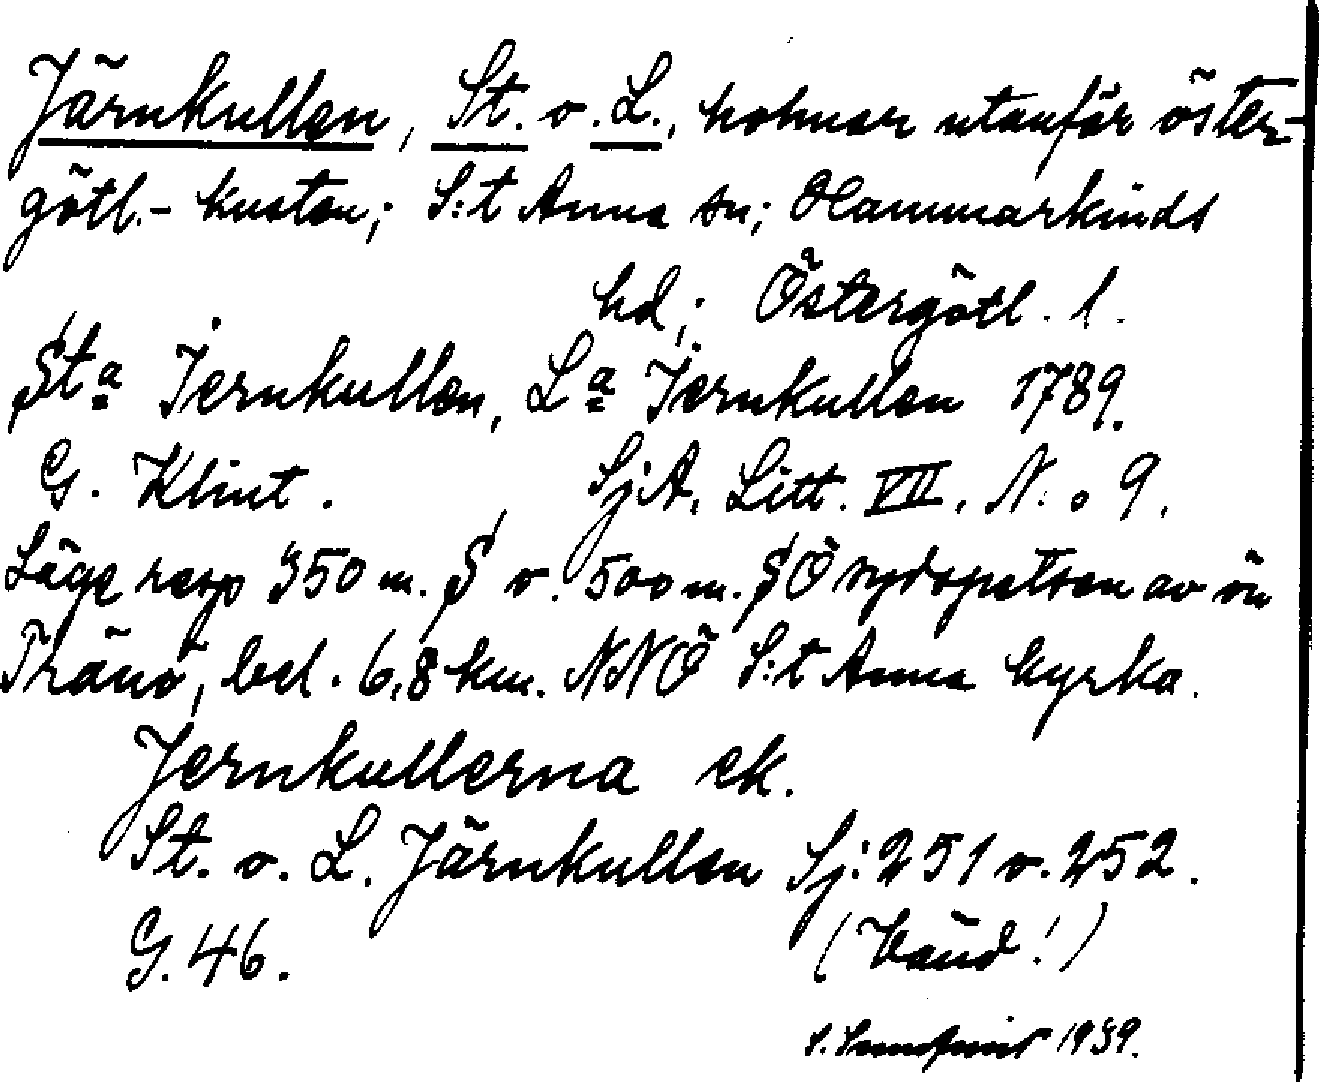 Järnkullen, St. o. L., holmar utanför öster-
götl.- kusten; S:t Anna sn; Hammarkinds
hd; Östergötl. l.
Sta Jernkullen, La Jernkullen 1789.
G. Klint. SjA. Litt. VII. N:o 9.
Läge resp 350 m. S o. 500 m. SÖ sydspetsen av ön
Thänö, bel. 6,8 km. NNÖ S:t Anna kyrka.
Jernkullerna ek.
St. o. L. Järnkullen Sj: 251 o. 252.
G. 46. (Vänd!)
S. 1939.